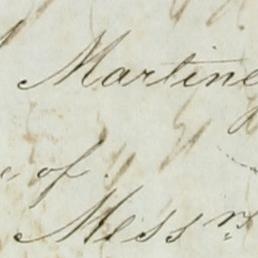 Martine
of
Mess rs